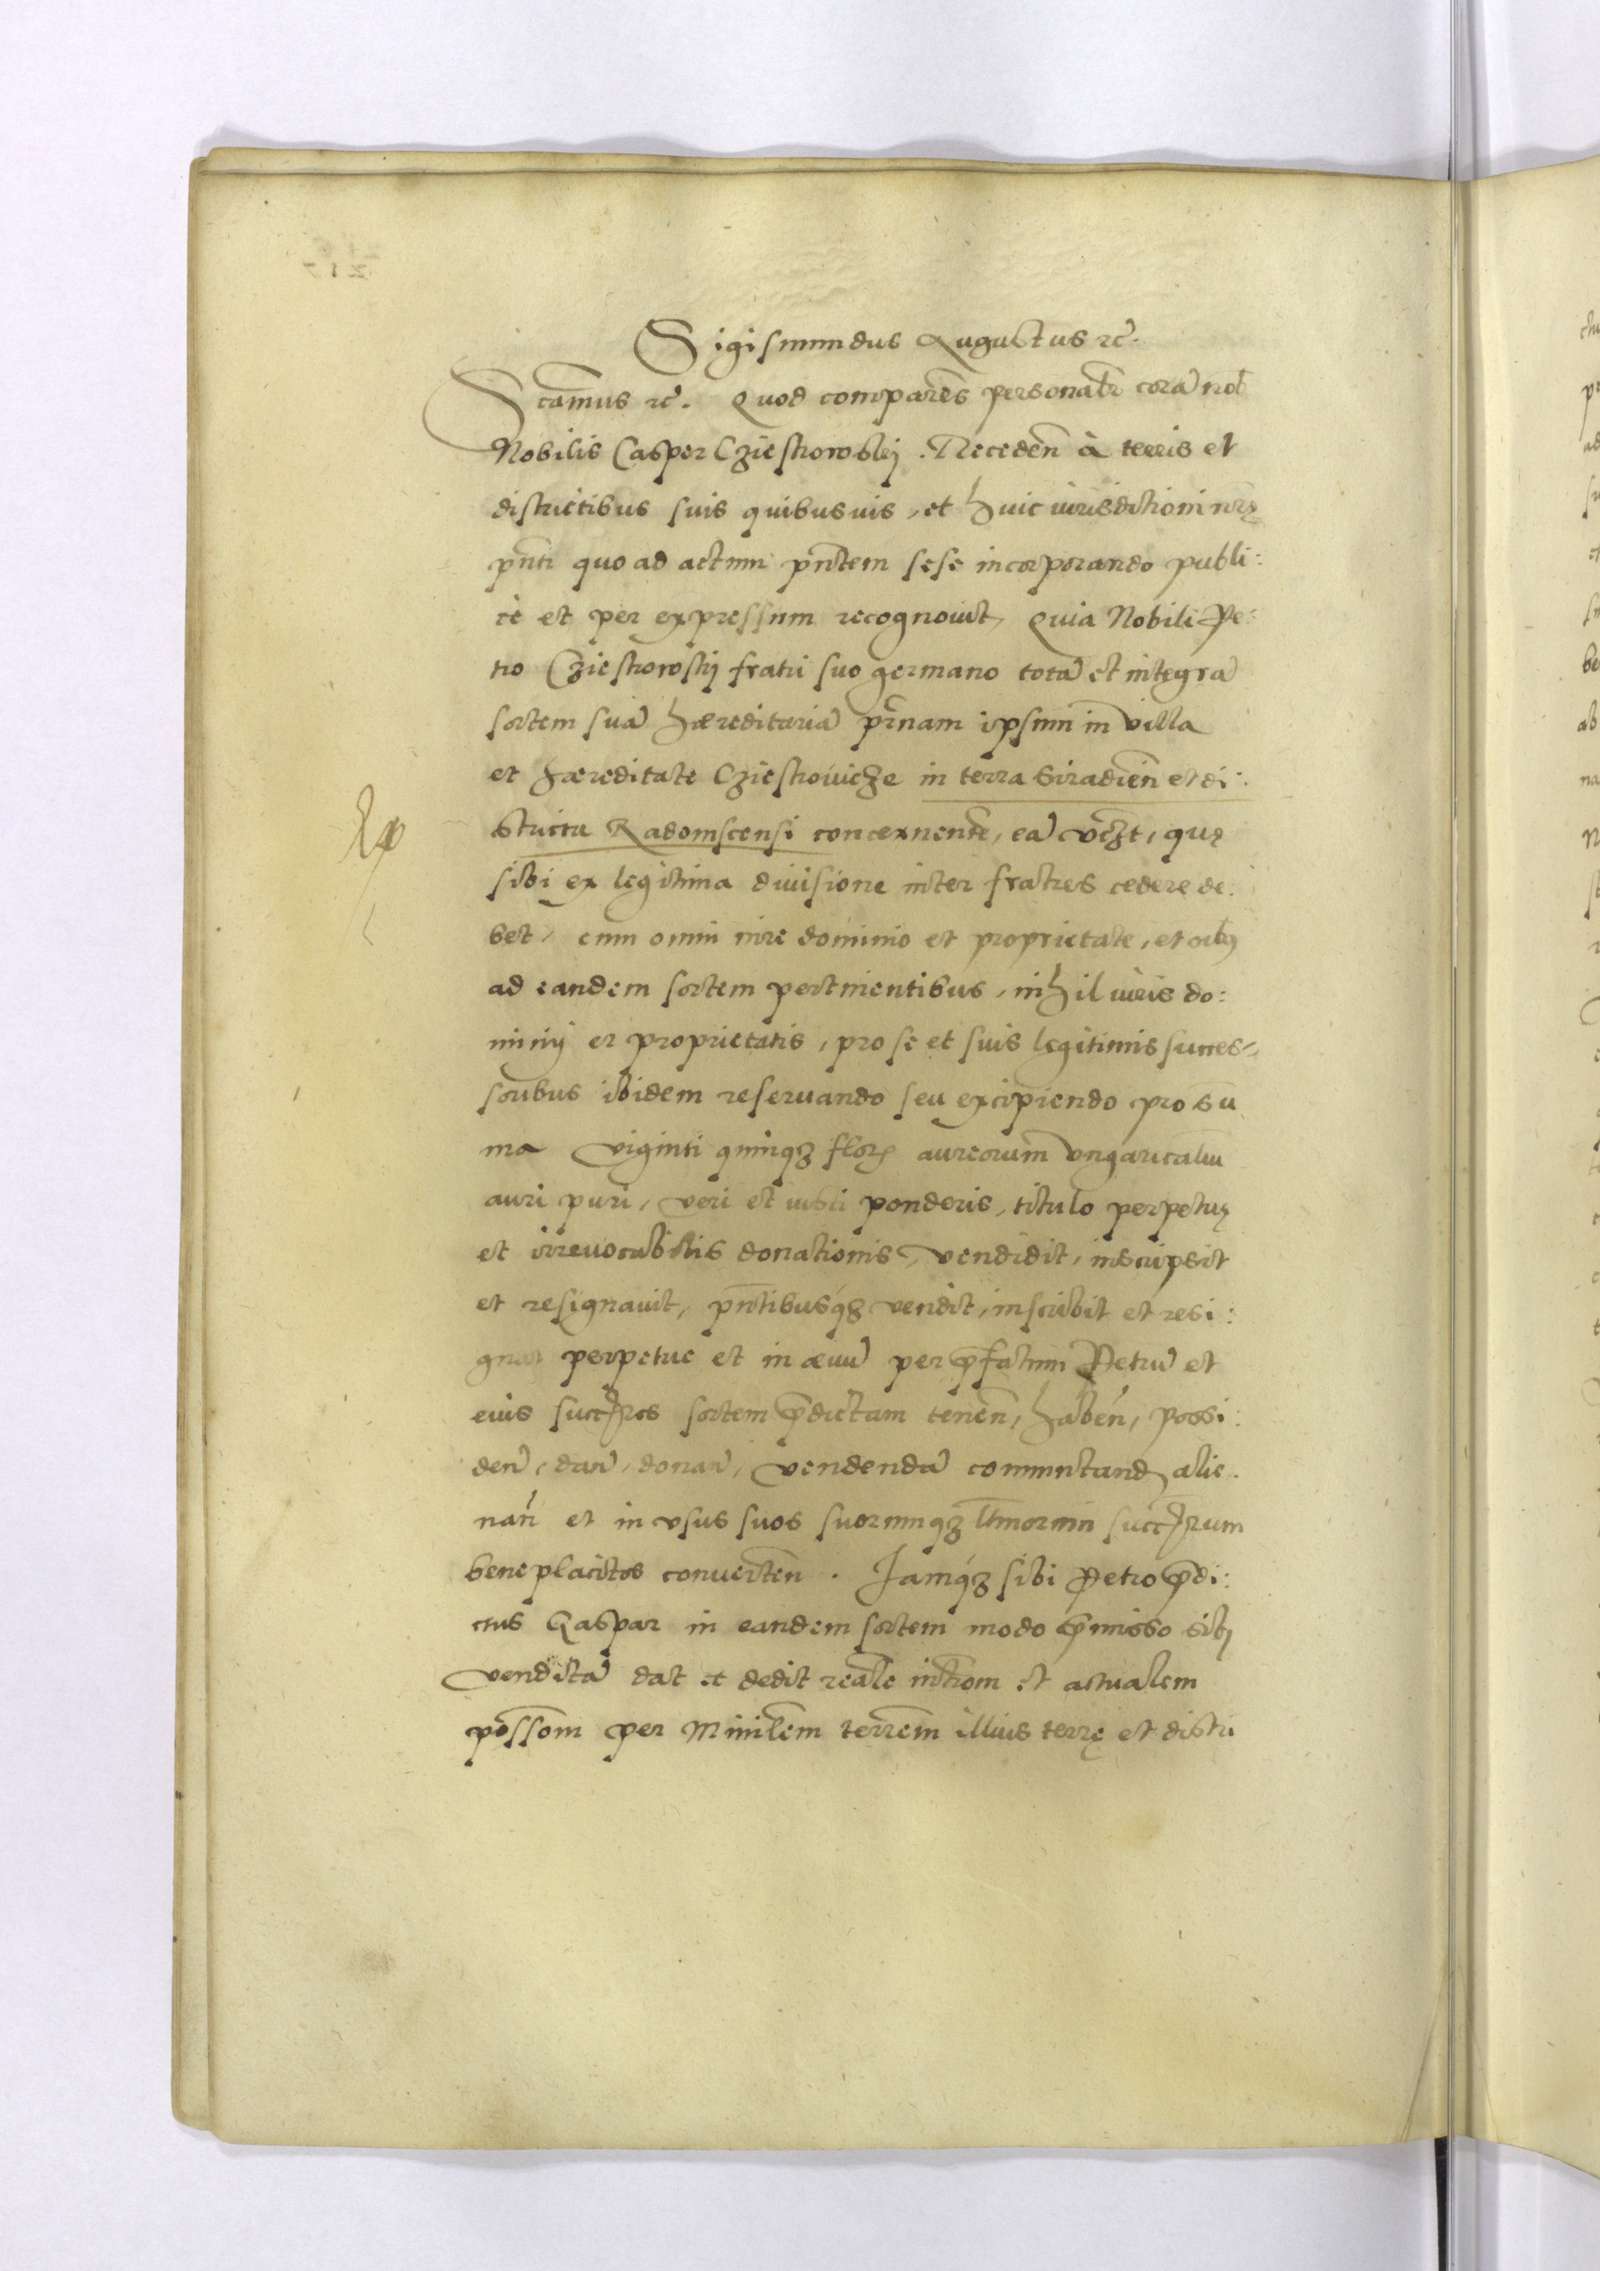 Sigismundus Augustus etc̃.
Scam̃us etc̃. Quod comparẽs personalr̃ corã nob̃
Nobilis Casper Cziestrowskij. Receden̄ à terris et
districtibus suis quibusuis, et huic iurisdictioni nr̃ę
pñti quo ad actum pñtem sese incorporando publi:
ce et per expressum recognouit, Quia Nobili Pe:
tro Cziestrowskij fratri suo germano totã et integrã
sortem suã hæreditariã pr̃nam ipsum in villa
et hæreditate Cziestrouicze in terra Siradien̄ et di:
strictu Radomscensi concernentẽ, eã vczt, quę
sibi ex legitima diuisione inter fratres cedere de:
bet, cum omni iure dominio et proprietate, et oĩbus
ad eandem sortem pertinentibus, nihil iuris do:
minij et proprietatis, pro se et suis legitimis succes=
soribus ibidem reseruando seu excipiendo pro su
ma viginti quinqz flor aureorum vngaricaliũ
auri puri, veri et iusti ponderis, titulo perpetuę
et irreuocabilis donationis, vendidit, inscripsit
et resignauit, pñtibusqz vendit, inscribit et resi:
gnat perpetue et in æuũ per p̃fatum Petrũ et
eius succ̃res sortem p̃dictam tenen̄, haben̄, possi:
den̄, dan̄, donan̄, vendendã commutand, alie:
nan̄ et in vsus suos suorumqz ltĩmorum succ̃rum
beneplacitos conuerten̄. Iamqz sibi Petro p̃di:
ctus Gaspar in eandem sortem modo p̃misso sibi
venditã dat et dedit realẽ intr̃om et actualem
poss̃om per Minĩlem terr̃em illius terrę et distri